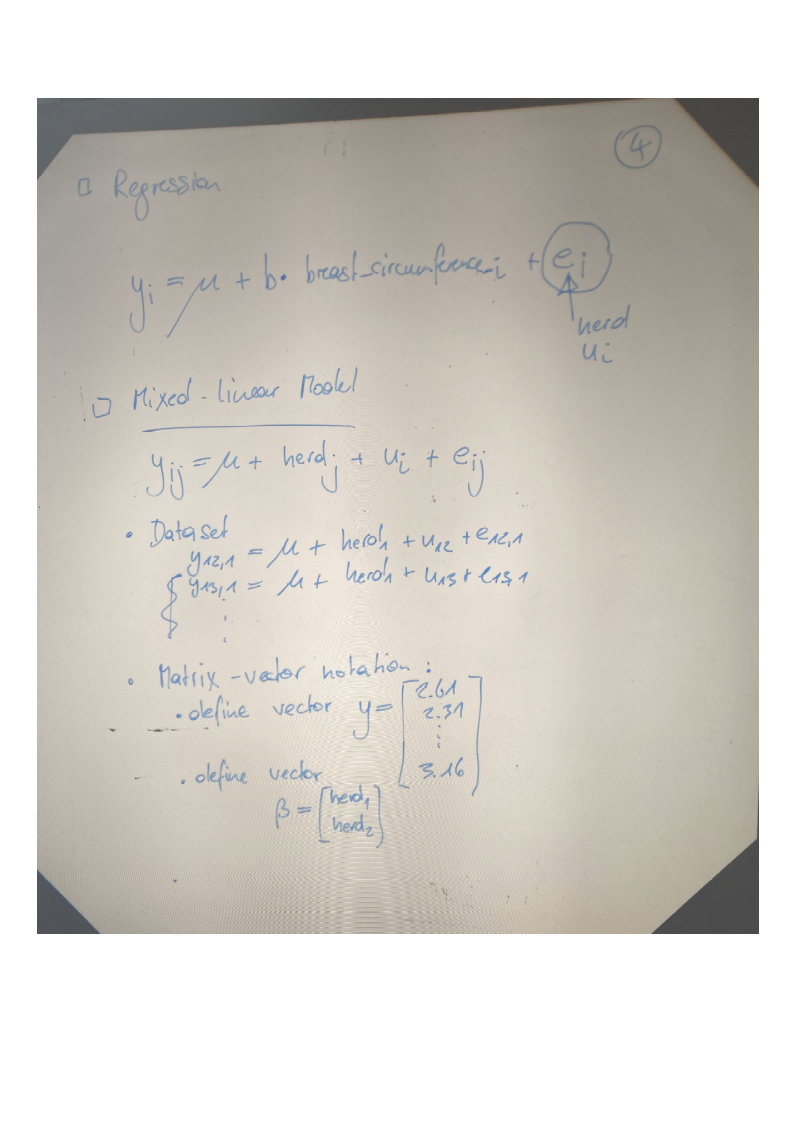 4
□ Regression
y_i = μ + b · breast_circumference_i + e_i
herd
u_i
□ Mixed-linear Model
y_ij = μ + herd_j + u_i + e_ij
• Dataset
y_12,1 = μ + herd_1 + u_12 + e_12,1
y_13,1 = μ + herd_1 + u_13 + e_13,1
⋮
• Matrix-vector notation:
• define vector y = [2.61
2.31
⋮
3.16]
• define vector
β = [herd_1
herd_2]